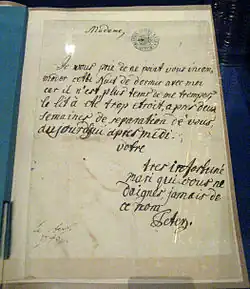 Madame,
Je vous prie de ne point vous incom
moder cette Nuit de dormir avec moi
car il n'est plus tems de me tromper
le lit a été trop etroit, apres deux
semaines de separation de vous
aujourdhui apres midi.
votre
tres infortuné
mari qui vous ne
daignes jamais de
ce nom
Peter